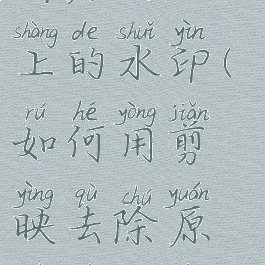 shàng de shuǐ yìn
上的水印(
rú hé yòng jiǎn
如何用剪
yìng qù chú yuán
映去除原